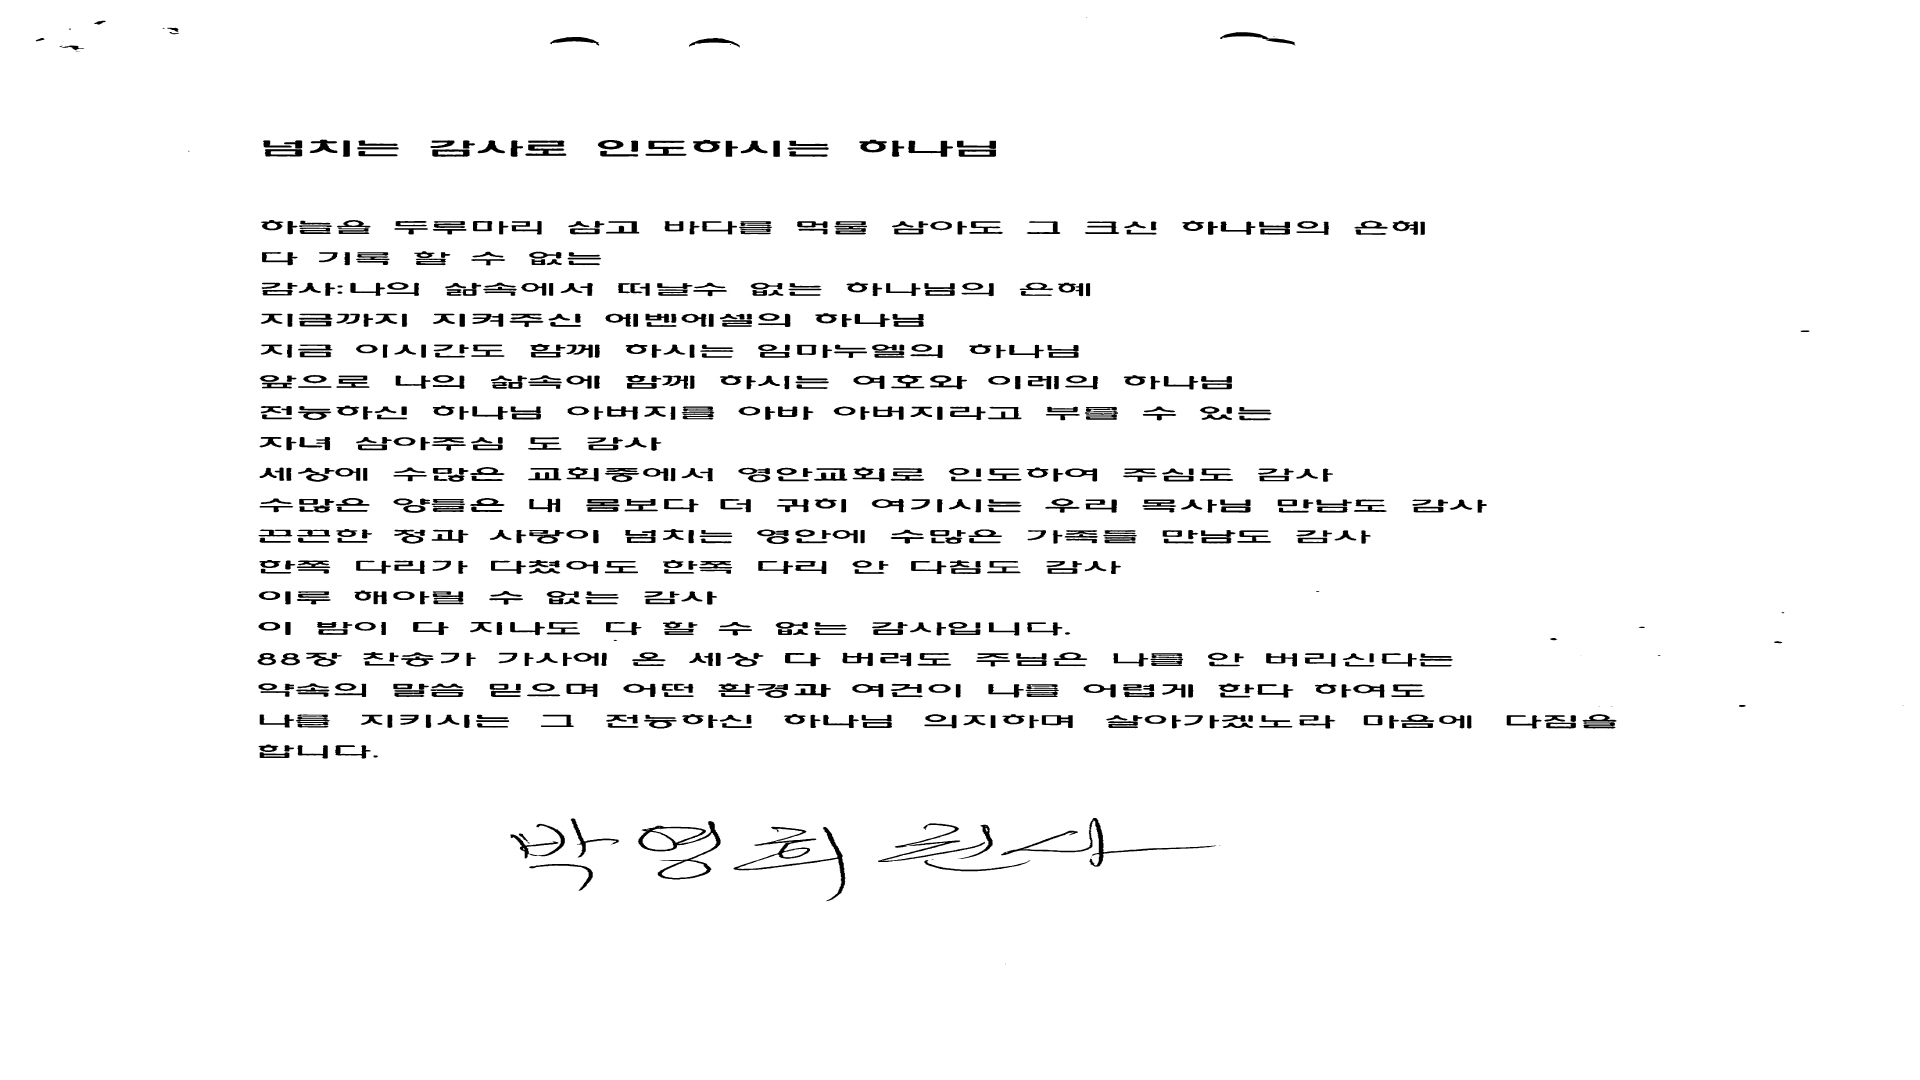 넘치는 감사로 인도하시는 하나님
하늘을 두루마리 삼고 바다를 먹물 삼아도 그 크신 하나님의 은혜
다 기록 할 수 없는
감사:나의 삶속에서 떠날수 없는 하나님의 은혜
지금까지 지켜주신 에벤에셀의 하나님
지금 이시간도 함께 하시는 임마누엘의 하나님
앞으로 나의 삶속에 함께 하시는 여호와 이레의 하나님
전능하신 하나님 아버지를 아바 아버지라고 부를 수 있는
자녀 삼아주심 도 감사
세상에 수많은 교회중에서 영안교회로 인도하여 주심도 감사
수많은 양들은 내 몸보다 더 귀히 여기시는 우리 목사님 만남도 감사
끈끈한 정과 사랑이 넘치는 영안에 수많은 가족들 만남도 감사
한쪽 다리가 다쳤어도 한쪽 다리 안 다침도 감사
이루 해아릴 수 없는 감사
이 밤이 다 지나도 다 할 수 없는 감사입니다.
88장 찬송가 가사에 온 세상 다 버려도 주님은 나를 안 버리신다는
약속의 말씀 믿으며 어떤 환경과 여건이 나를 어렵게 한다 하여도
나를 지키시는 그 전능하신 하나님 의지하며 살아가겠노라 마음에 다짐을
합니다.
박영희 권사